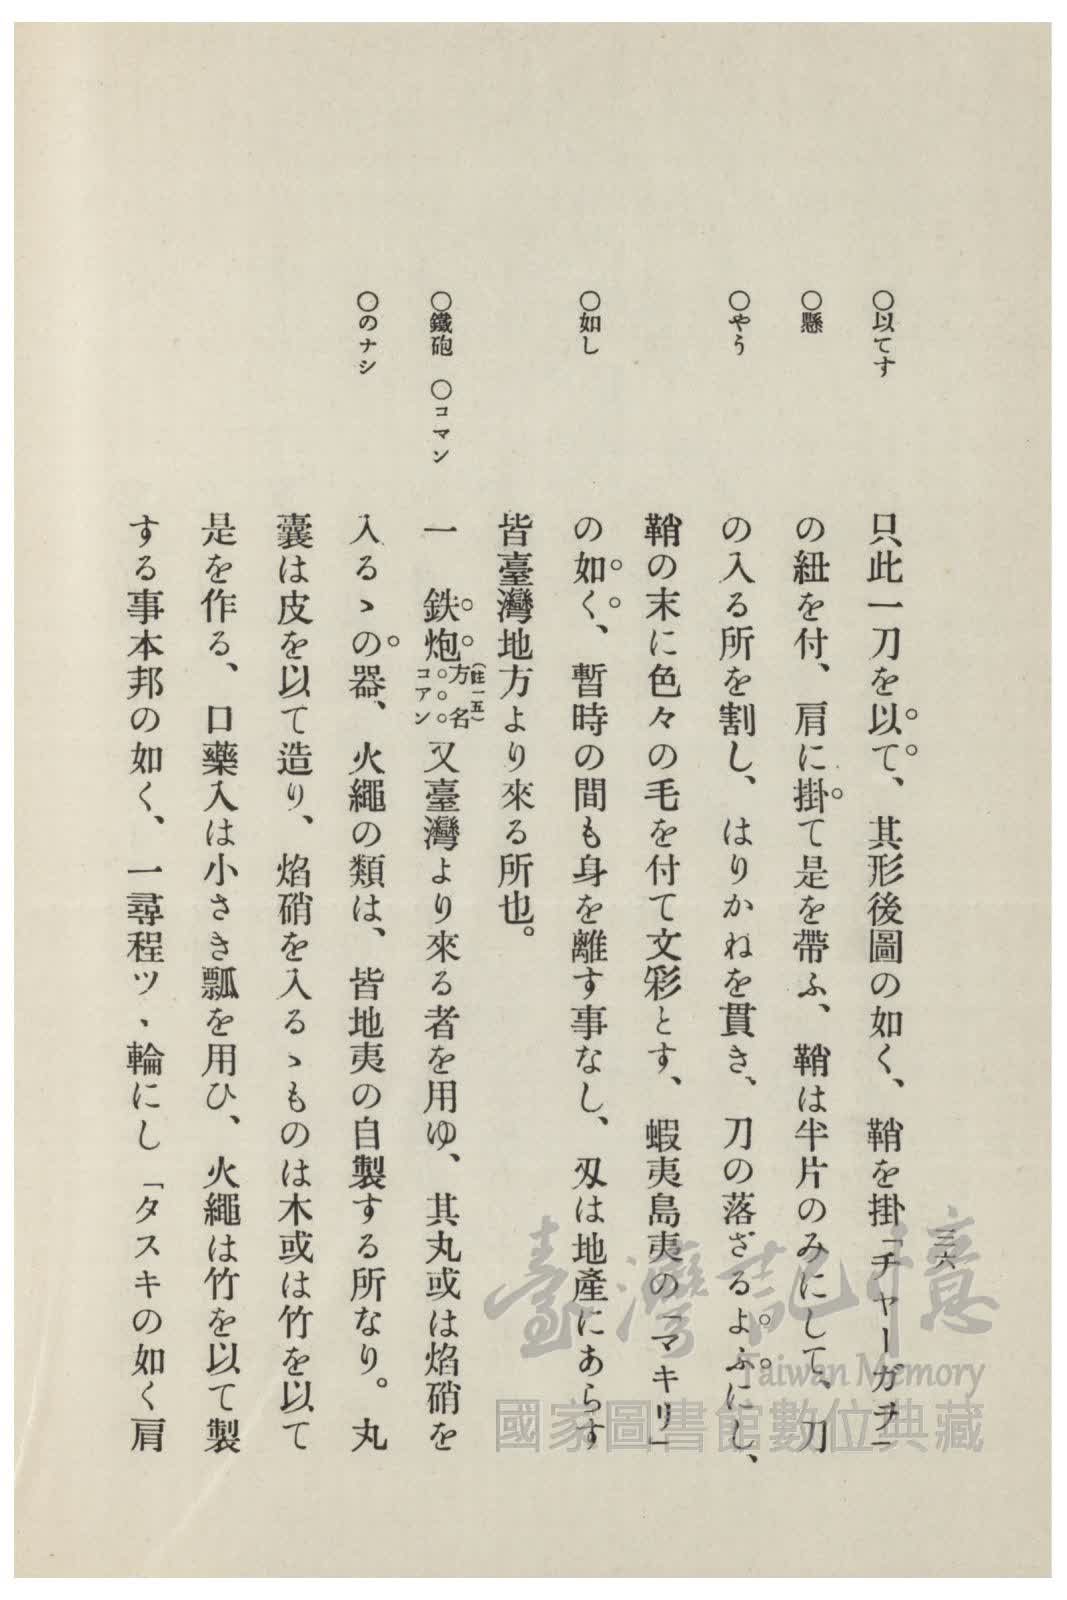 三六
○以てす
○懸
○やう
○如し
○鐵砲　○コマン
○のナシ
只此一刀を以て、其形後圖の如く、鞘を掛「チャーガヂ」
の紐を付、肩に掛て是を帶ふ、鞘は半片のみにして、刀
の入る所を割し、はりかねを貫き、刀の落ざるよふにし、
鞘の末に色々の毛を付て文彩とす、蝦夷島夷の「マキリ」
の如く、暫時の間も身を離す事なし、刄は地產にあらす
皆臺灣地方より來る所也。
一　鉄炮（註一五）方名コアン又臺灣より來る者を用ゆ、其丸或は焰硝を
入るゝの器、火繩の類は、皆地夷の自製する所なり。丸
囊は皮を以て造り、焰硝を入るゝものは木或は竹を以て
是を作る、口藥入は小さき瓢を用ひ、火繩は竹を以て製
する事本邦の如く、一尋程ツヽ輪にし「タスキの如く肩
臺灣記憶
Taiwan Memory
國家圖書館數位典藏